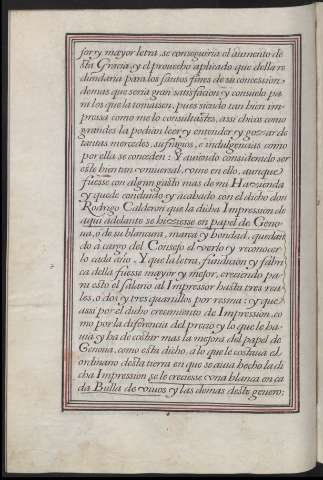 jor y mayor letra se conseguiria el aumento de
sta Gracia, y el prouecho aplicado que della re
dundaria para los santos fines de su concession
demas que seria gran satisfacion y consuelo pa
ra los que la tomassen, pues siendo tan bien im-
pressa como me lo consultastes, assi chicos como
grandes la podian leer y entender y gozar de
tantas mercedes, sufragios, e indulgencias como
por ella se conceden: Y auiendo considerado ser
este bien tan vniuersal, vine en ello, aunque
fuesse con algun gasto mas de mi Hazienda
y quedò concluido y acabado con el dicho don
Rodrigo Calderon que la dicha Impression de
aqui adelante se hiziesse en papel de Geno-
ua, o de su blancura, marca y bondad, quedan
do à cargo del Consejo el verlo y reconocer
lo cada año. Y que la letra, fundicion y fabri
ca della fuesse mayor y mejor, creciendo pa
ra esto el salario al Impressor hasta tres rea
les, o dos y tres quartillos por resma: y que
assi por el dicho crecimiento de Impression, co
mo por la diferencia del precio y lo que le ha-
uia y ha de costar mas la mejora del papel de
Genoua, como esta dicho, a lo que le costaua el
ordinario desta tierra en que se auia hecho la di
cha Impression se le creciesse vna blanca en ca
da Bulla de viuos y las demas deste genero: